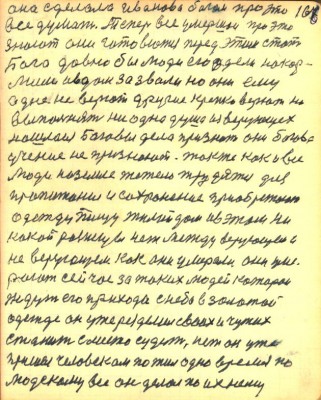 она сделала Иванова бога про это 168
все думали. Теперь все умершы про это
знают они готовятся перед этим стать
Бога добы бы люди его одели накор-
мили и в дом зазвали но они ему
одне не верят другие крепко верят но
выполнять ни одна душа из верующих
нашлась Боговы дела признают они богово
учение не признают. также как и все
люди на земле тяжело трудятся для
пропитания и сохранение приобретают
одежду пищу жилой дом и в этом ни
какой разницы нет между верующего и
не верующем как они умерали они уми-
рают сейчас за таких людей которые
ждут его прихода с неба в золотой
одежде он уже передвами своих и чужих
станит с место судить, нет он уже
пришел человеком пожил одно время по
людскому все он делал по ихнему